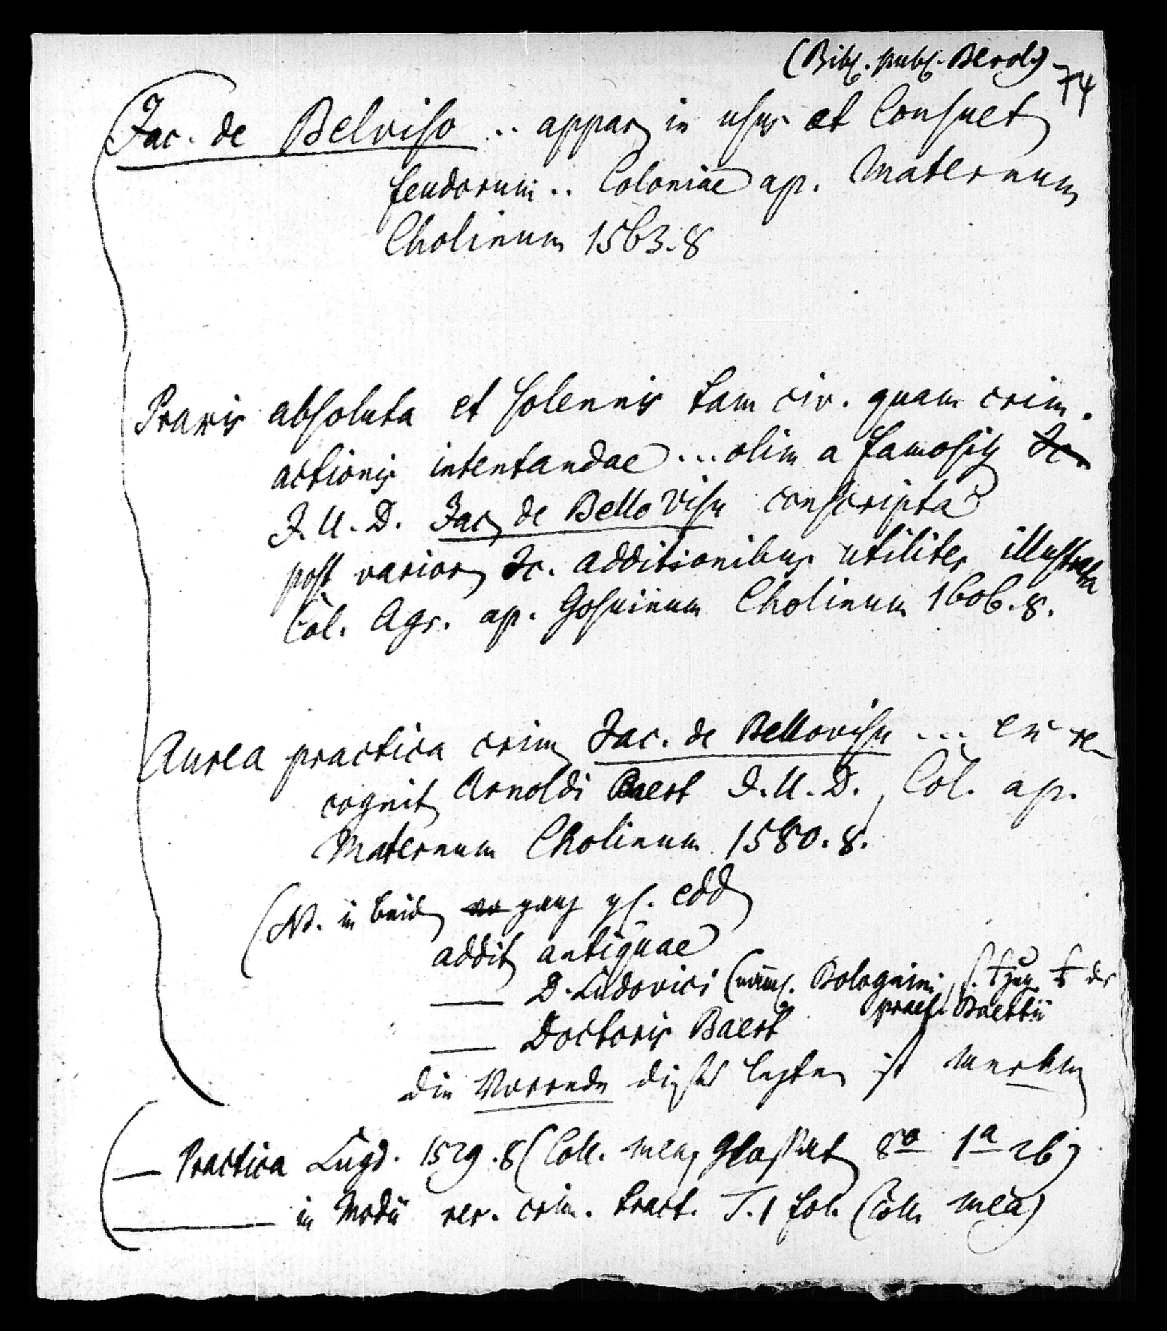 (Bibl. publ. Berol)
74
Jac. de Belviso .. appar in usus et Consuet
feudorum .. Coloniae ap. Maternum
Cholinum 1563. 8
Praxis absoluta et solennis tam civ. quam crim.
actionis intentandae ... olim a famosis Ic
J. U. D. Jac de Bello Visu conscripta
post varior Ic. additionibus utiliter illustrata
Col. Agr. ap. Gosuinum Cholinum 1606. 8.
Aurea practica crim Jac. de Bellovisu ... ex re-
cognit Arnoldi Baert J. U. D., Col. ap.
Maternum Cholinum 1580. 8.
(NB. in beid ganz gl. edd
addit antiquae
— D. Ludovici (näml. Bolognini, s. der
praef. Baertii
— Doctoris Baert
die Vorrede dieses letzten ist
— Practica Lugd. 1529. 8 (Coll. mea Glossat 8a 1a 26)
— in Modii rer. crim. tract. T. 1 fol. (Coll. mea)